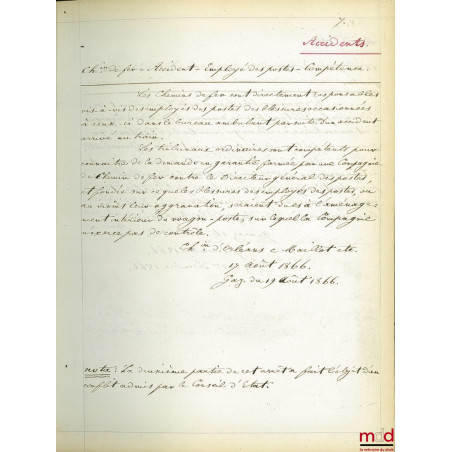 7.
Accidents.
Ch.ins de fer - Accident - Employé des postes - Compétence.
Les Chemins de fer sont directement responsables
vis-à-vis des employés des postes des blessures occasionnées
à ceux-ci dans le bureau ambulant par suite d'un accident
arrivé au train.
Les tribunaux ordinaires sont compétents pour
connaître de la demande en garantie formée par une Compagnie
de Chemin de fer contre le Directeur général des postes,
et fondée sur ce que les blessures des employés des postes, ou
au moins leur aggravation, seraient dues à l'aménage-
ment intérieur du wagon-poste, sur lequel la Compagnie
n'exerce pas de contrôle.
Ch.in d'Orléans c Maillot etc.
17 Août 1866.
Gaz. du 19 Août 1866.
note: La deuxième partie de cet arrêt a fait l'objet d'un
conflit admis par le Conseil d'Etat.
mdd
la mémoire du droit